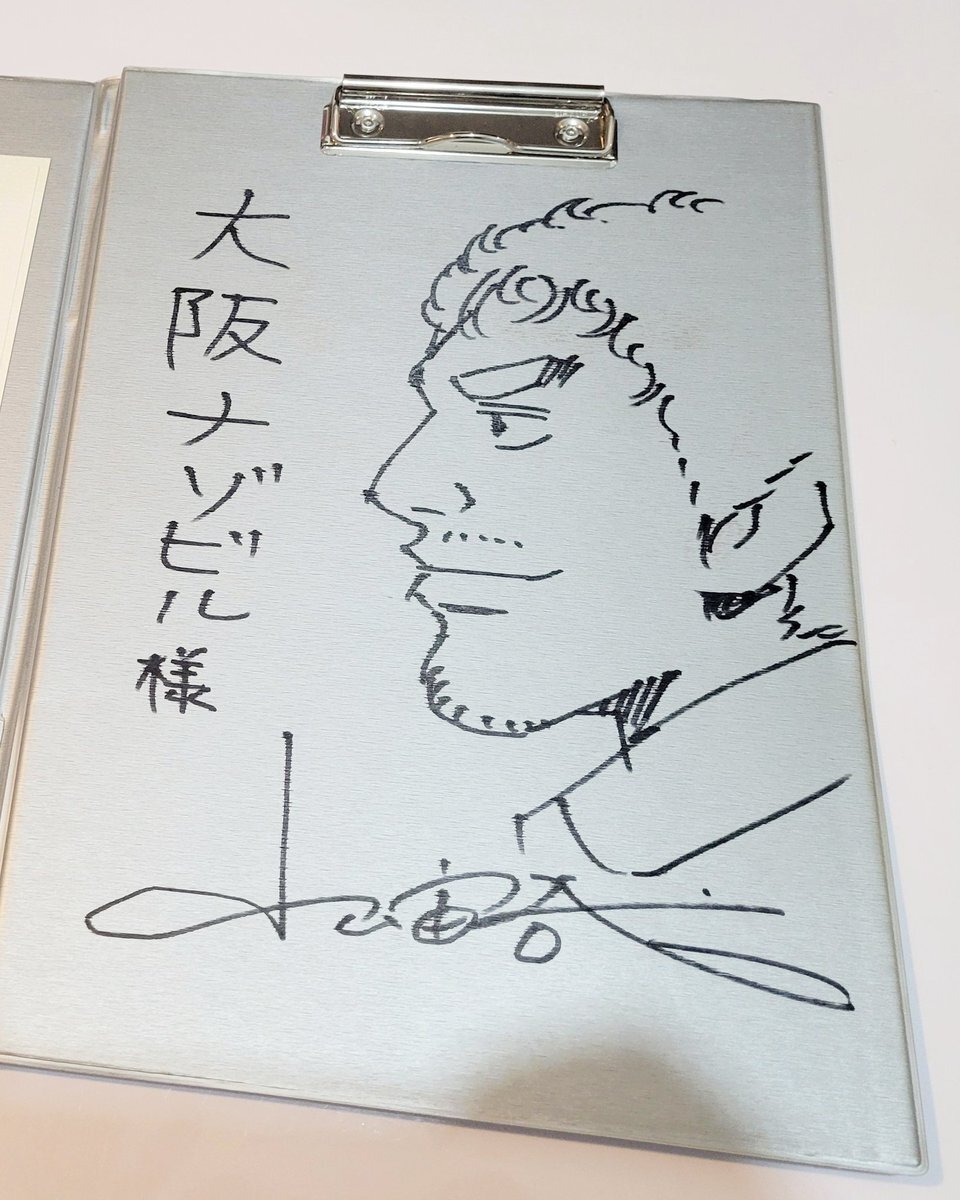 大阪ナゾビル様